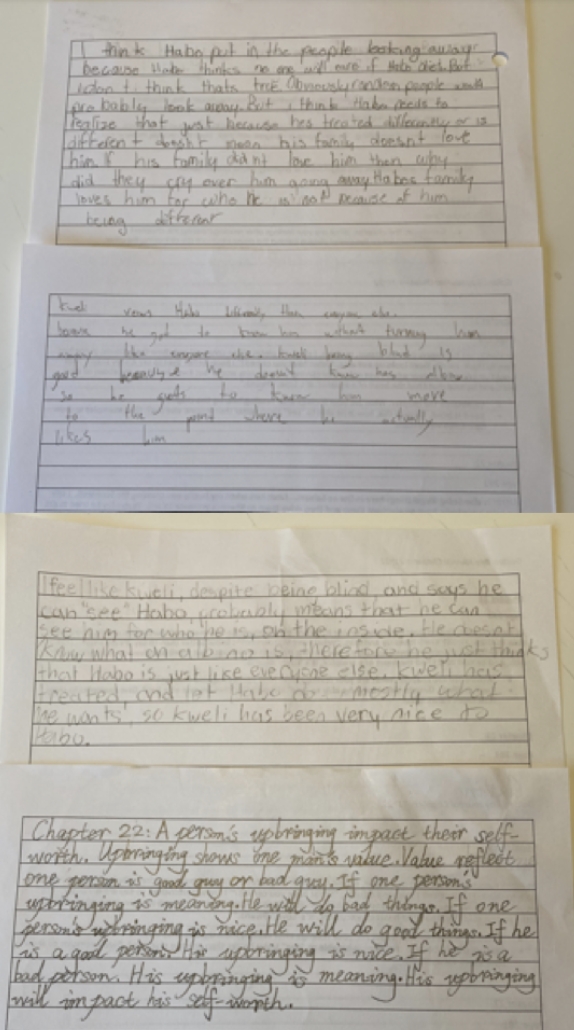 I think Habo put in the people looking away
because Habo thinks no one will care if Habo died. But
I don't think thats true. Obviously random people
probably look away. But i think Habo needs to
realize that just because hes treated differently or is
different doesnt mean his family doesnt love
him. If his family didnt love him then why
did they cry over him going away. Habos family
loves him for who he is not because of him
being different
Kweli Habo differently than anyone else.
he got to know him without turning him
away like anyone else. Kweli being blind is
good because he doesn't know
so he gets to know him more
to the point where he actually
likes him
I feel like kweli, despite being blind, and says he
can "see" Habo, probably means that he can
see him for who he is, on the inside. He doesnt
know what an albino is, therefore he just thinks
that Habo is just like everyone else. Kweli has
treated, and let Habo do mostly what
he wants, so kweli has been very nice to
Habo.
Chapter 22: A person's upbringing impact their self-
worth. Upbringing shows one man's value. Value reflect
one person is good guy or bad guy. If one person's
upbringing is meaning. He will do bad things. If one
person's upbringing is nice. He will do good things. If he
is a good person. His upbringing is nice. If he is a
bad person. His upbringing is meaning. His upbringing
will impact his self-worth.